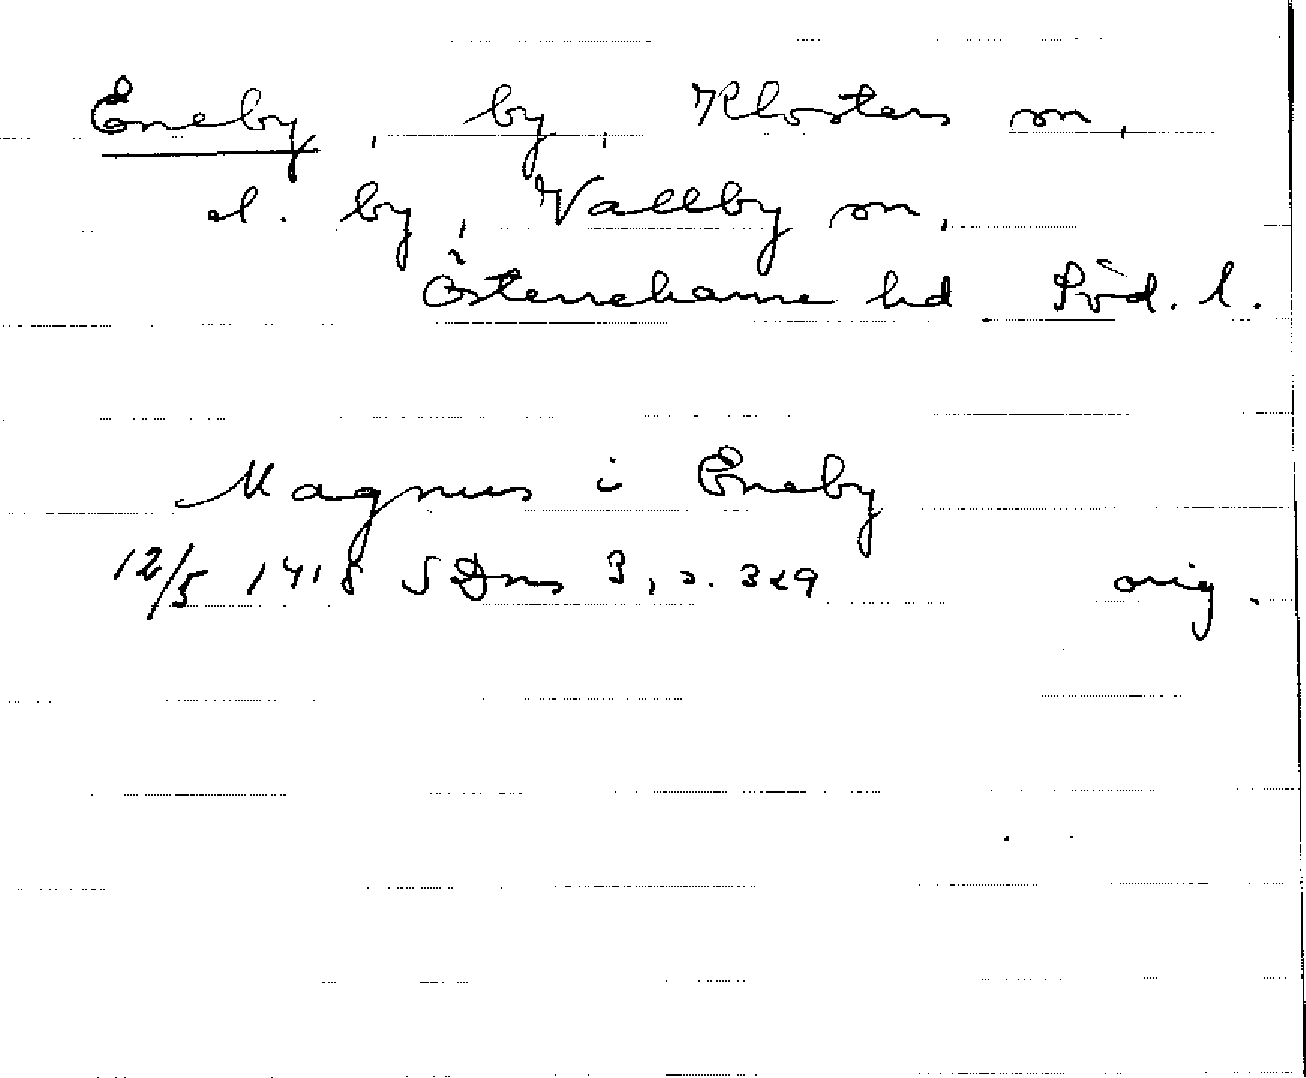 Eneby, by, Klosters sn,
el. by, Vallby sn,
Österrekarne hd Söd. l.
Magnus i Eneby
12/5 1418 SDns 3, s. 329 orig.